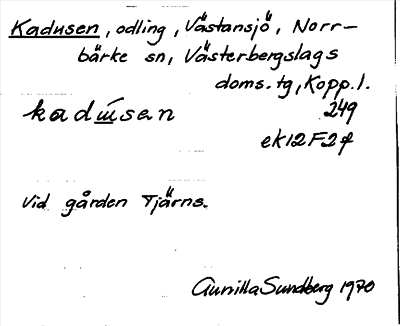 Kadusen, odling, Västansjö, Norr-
bärke sn, Västerbergslags
doms. tg, Kopp. l.
kadú̱sen 249
ek 12 F 2 f
Vid gården Tjärns.
Gunilla Sundberg 1970